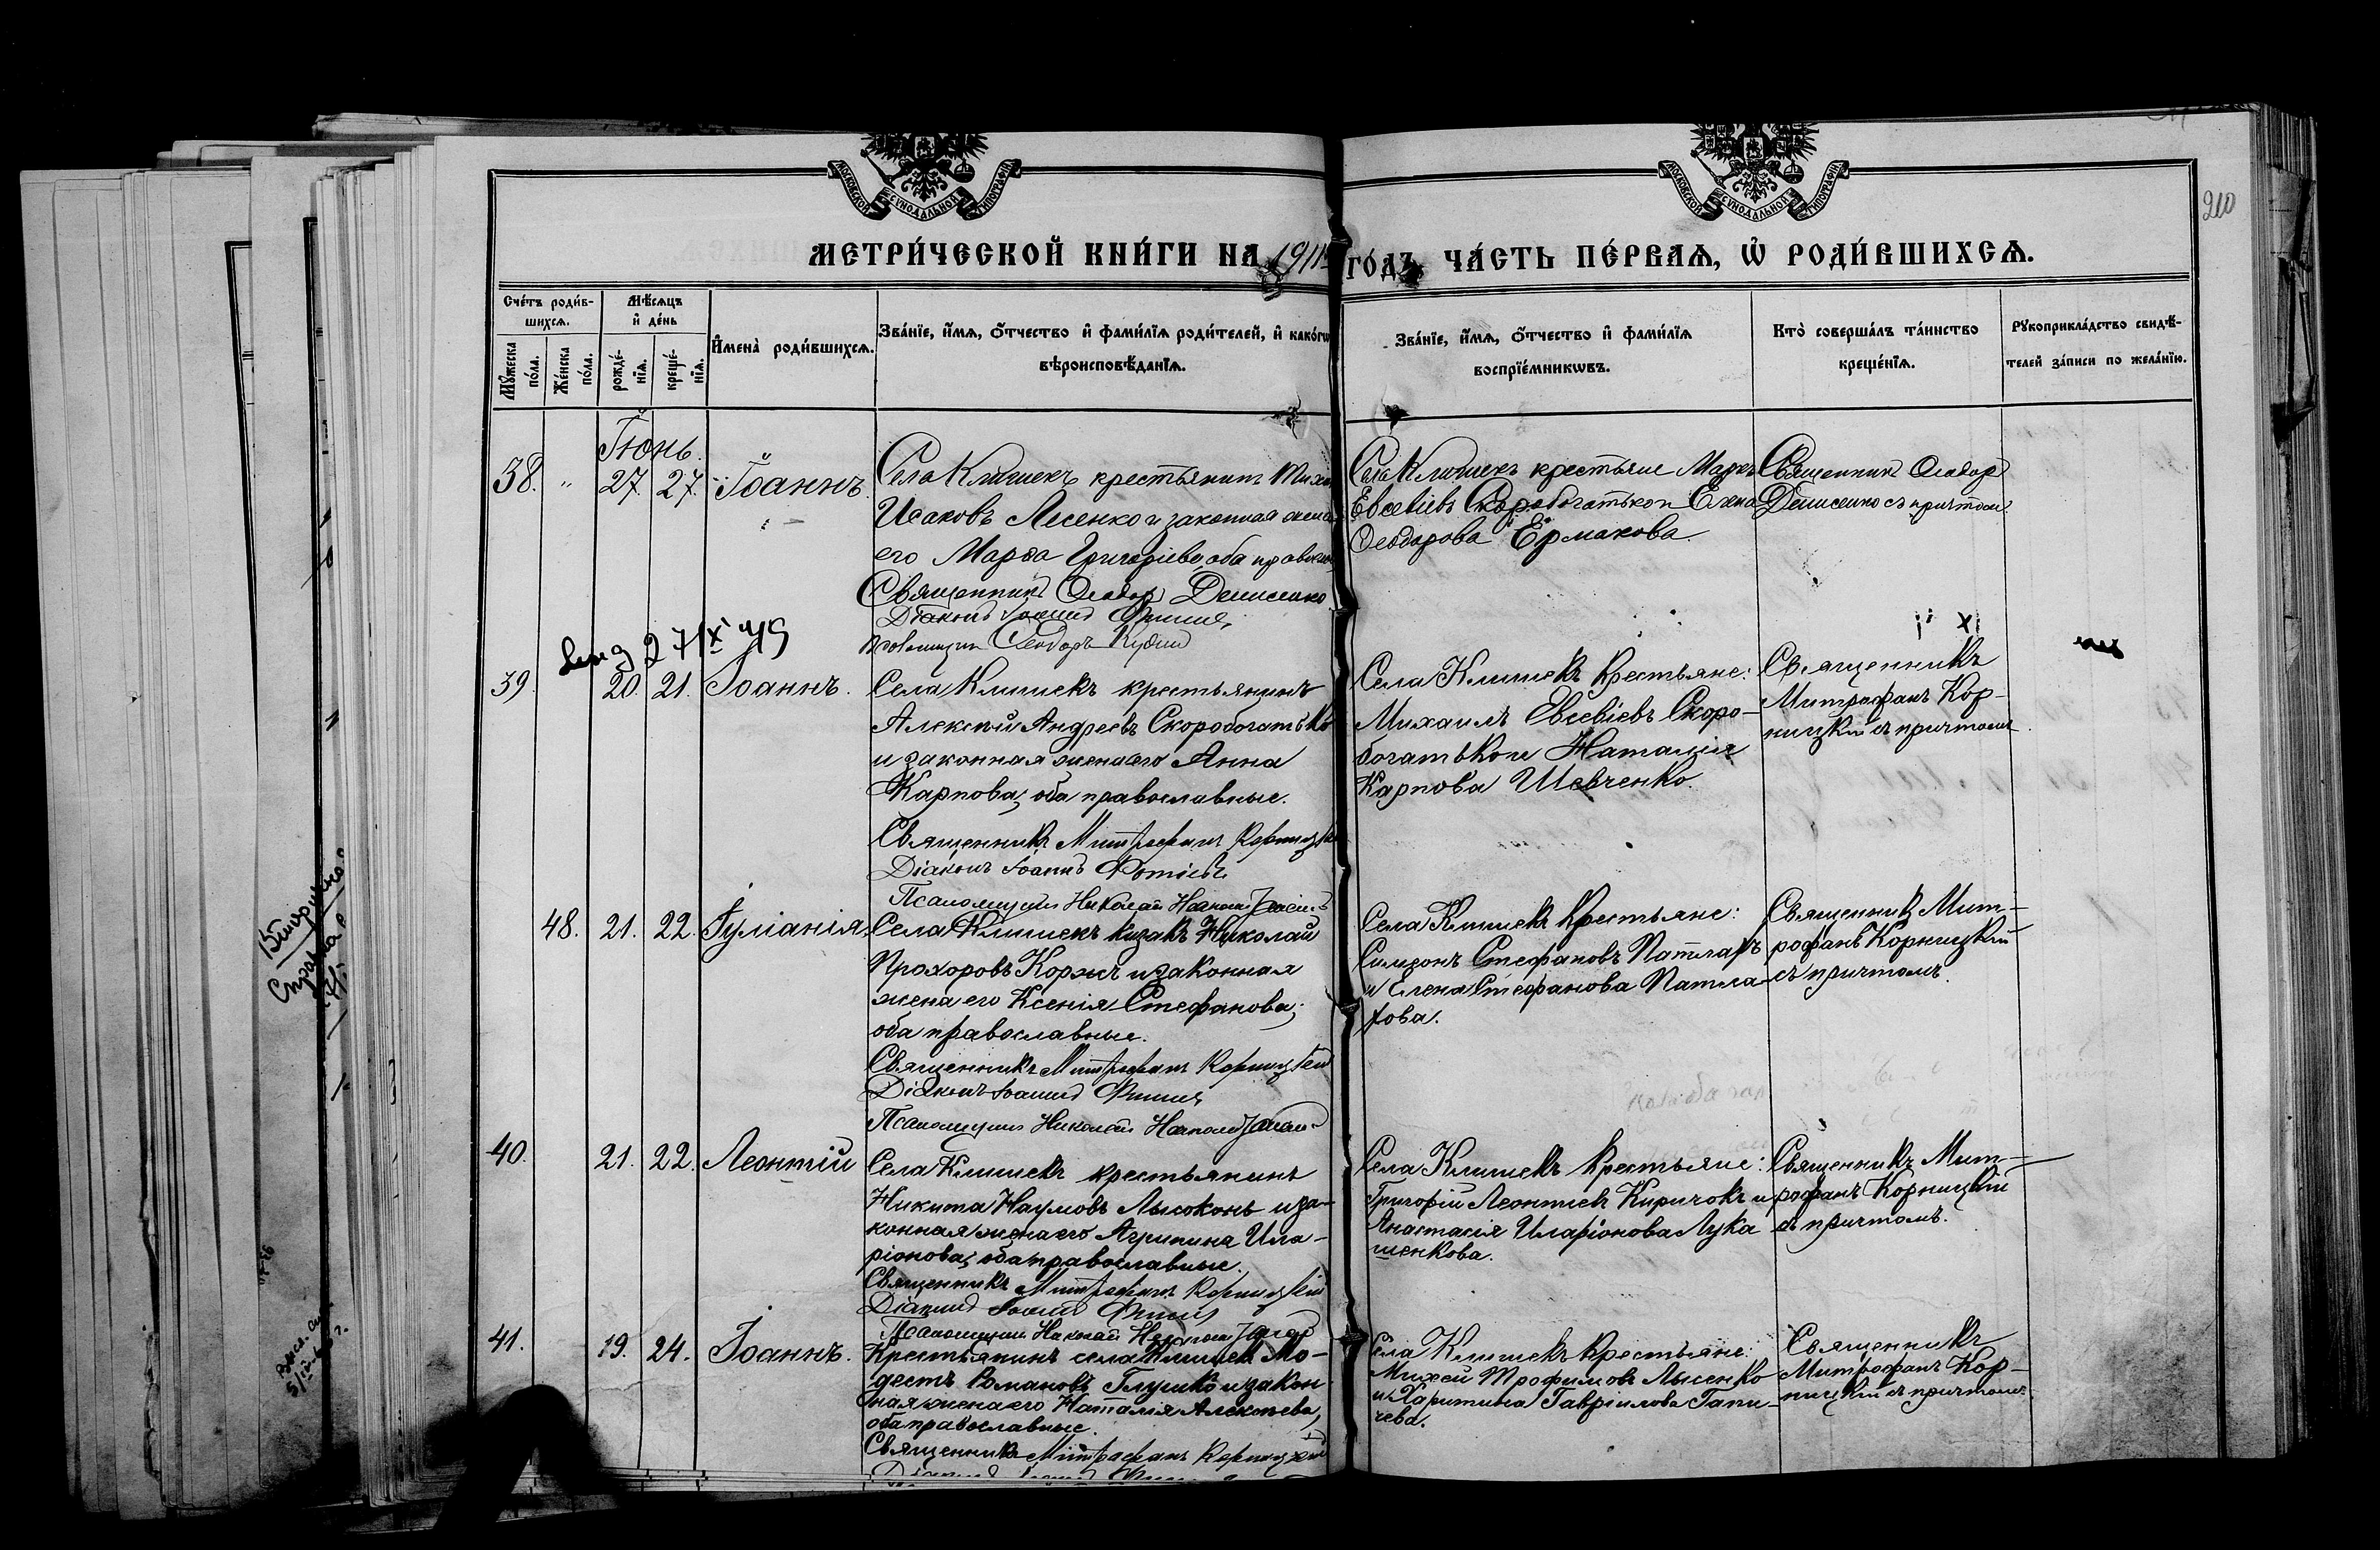 МОСКОВСКОЙ СΥНОДАЛЬНОЙ ТИПОГРАФІИ
МОСКОВСКОЙ СΥНОДАЛЬНОЙ ТИПОГРАФІИ
210
МЕТРИ́ЧЕСКОЙ КНИ́ГИ НА 1911 ГО́ДЪ, ЧА́СТЬ ПЕ́РВАѦ, Ѡ҆ РОДИ́ВШИХСѦ.
Сче́тъ роди́в-
шихсѧ.
Мꙋ́жеска по́ла.
Же́нска по́ла.
Мѣ́сѧцъ
и҆ де́нь
рожде́-
нїѧ.
креще́-
нїѧ.
И҆мена̀ роди́вшихсѧ.
Зва́нїе, и҆́мѧ, ѻ҆́тчество и҆ фами́лїѧ роди́телей, и҆ како́гѡ
вѣроисповѣ́данїѧ.
Зва́нїе, и҆́мѧ, ѻ҆́тчество и҆ фами́лїѧ
воспрїе́мникѡвъ.
Кто̀ соверша́лъ та́инство
креще́нїѧ.
Рꙋкоприкла́дство свидѣ́-
телей за́писи по жела́нїю.
Іюнь.
38. „ 27. 27. Іоаннъ.
Села Клишекъ крестьянинъ
Исаковъ Лесенко и законная жена
его Марѳа Григоріева, оба
Священникъ Ѳеодоръ Денисенко
Діаконъ Іоаннъ
Ѳеодоръ
Села Клишекъ крестьяне Маркъ
Евсевіевъ Скоробогатько и Елена
Ѳеодорова Ермакова
Священникъ Ѳеодоръ
Денисенко съ причтомъ.
39. 20. 21. Іоаннъ.
Села Клишекъ крестьянинъ
Алексѣй Андреевъ Скоробогатько
и законная жена его Анна
Карпова, оба православные.
Священникъ Митрофанъ Корницкій
Діаконъ Іоаннъ Фотіевъ
Псаломщикъ Николай
Села Клишекъ крестьяне:
Михаилъ Евсевіевъ Скоро-
богатько и Наталія
Карпова Шевченко.
Священникъ
Митрофанъ Кор-
ницкій съ причтомъ.
48. 21. 22. Іуліанія.
Села Клишекъ казакъ Николай
Прохоровъ Коржъ и законная
жена его Ксенія Стефанова;
оба православные.
Священникъ Митрофанъ Корницкій
Діаконъ Іоаннъ
Псаломщикъ Николай
Села Клишекъ крестьяне:
Симеонъ Стефановъ Патларъ
и Елена Стефанова Патла-
рова.
Священникъ Мит-
рофанъ Корницкій
съ причтомъ.
40. 21. 22. Леонтій
Села Клишекъ крестьянинъ
Никита Наумовъ Лысоконь и за-
конная жена его Агрипина Ила-
ріонова, оба православные.
Священникъ Митрофанъ Корницкій
Діаконъ Іоаннъ
Псаломщикъ Николай
Села Клишекъ крестьяне:
Григорій Леонтіевъ Киричокъ и
Анастасія Иларіонова Лука
шенкова.
Священникъ Мит-
рофанъ Корницкій
съ причтомъ.
41. 19. 24. Іоаннъ.
Крестьянинъ села Клишекъ Мо-
дестъ Романовъ Глушко и закон-
ная жена его Наталія Алексѣева,
оба православные.
Священникъ Митрофанъ Корницкій
Села Клишекъ крестьяне:
Михей Трофимовъ Лысенко
и Харитина Гавріилова Гапи-
чева.
Священникъ
Митрофанъ Кор-
ницкій съ причтомъ.